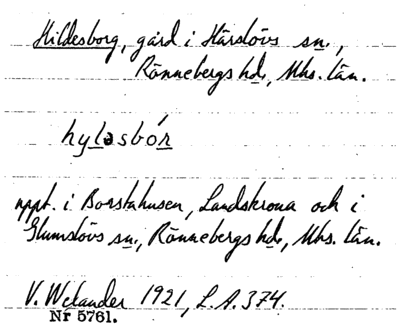 Hildesborg, gård i Härslövs sn.,
Rönnebergs hd., Mhs. län.
hyləsbór
uppt. i Borstahusen, Landskrona och i
Glumslövs sn., Rönnebergs hd., Mhs. län.
V. Welander 1921, L.A. 374.
Nr 5761.